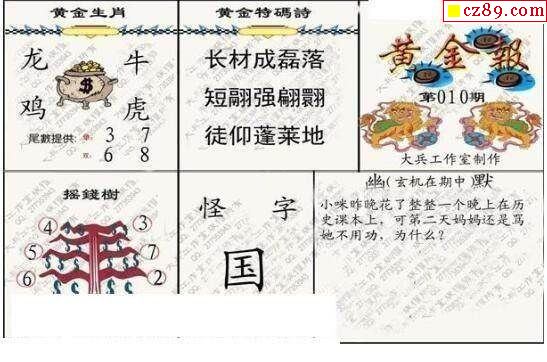 cz89.com
黄金生肖
龙 牛
鸡 虎
尾數提供: 单: 3 7
双: 6 8
黄金特碼詩
长材成磊落
短翮强翩翾
徒仰蓬莱地
黄金報
第010期
大兵工作室制作
摇錢樹
4 3
5 7
6 2
怪字
国
幽(玄机在期中)默
小咪昨晚花了整整一个晚上在历
史课本上，可第二天妈妈还是骂
她不用功，为什么？